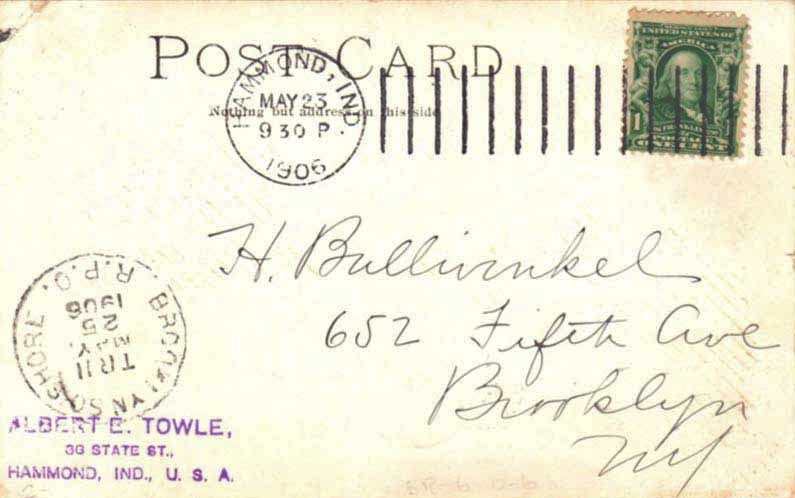 POST CARD
Nothing but address on this side
HAMMOND, IND.
MAY 23
9 30 P.
1906
UNITED STATES OF
AMERICA
1
FRANKLIN
ONE CENT
H. Bullwinkel
652 Fifth Ave
Brooklyn
NY
BROOKLYN SO. SHORE. R.P.O.
TR 11
MAY.
25
1906
ALBERT E. TOWLE,
36 STATE ST.,
HAMMOND, IND., U. S. A.